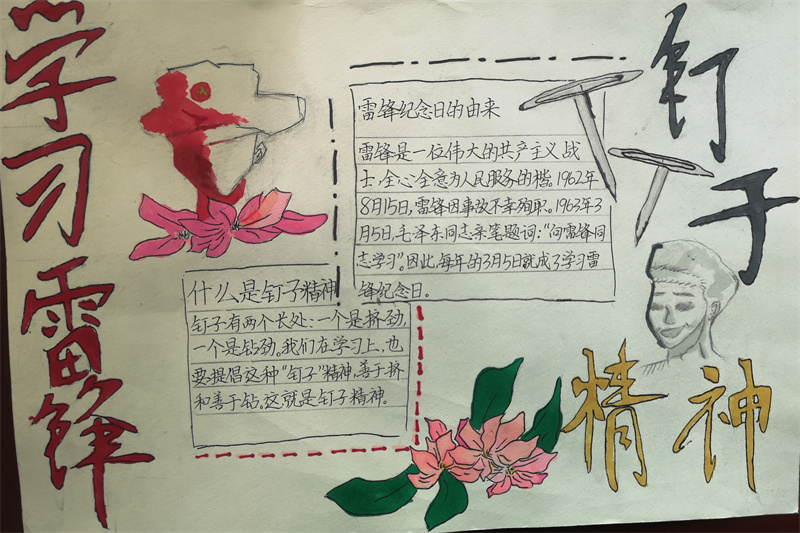 学习雷锋
钉子
精神
雷锋纪念日的由来
雷锋是一位伟大的共产主义战
士,全心全意为人民服务的楷。1962年
8月15日,雷锋因事故不幸殉职。1963年3
月5日,毛泽东同志亲笔题词:“向雷锋同
志学习”。因此,每年的3月5日就成了学习雷
锋纪念日。
什么是钉子精神
钉子有两个长处:一个是挤劲,
一个是钻劲。我们在学习上,也
要提倡这种“钉子”精神,善于挤
和善于钻。这就是钉子精神.